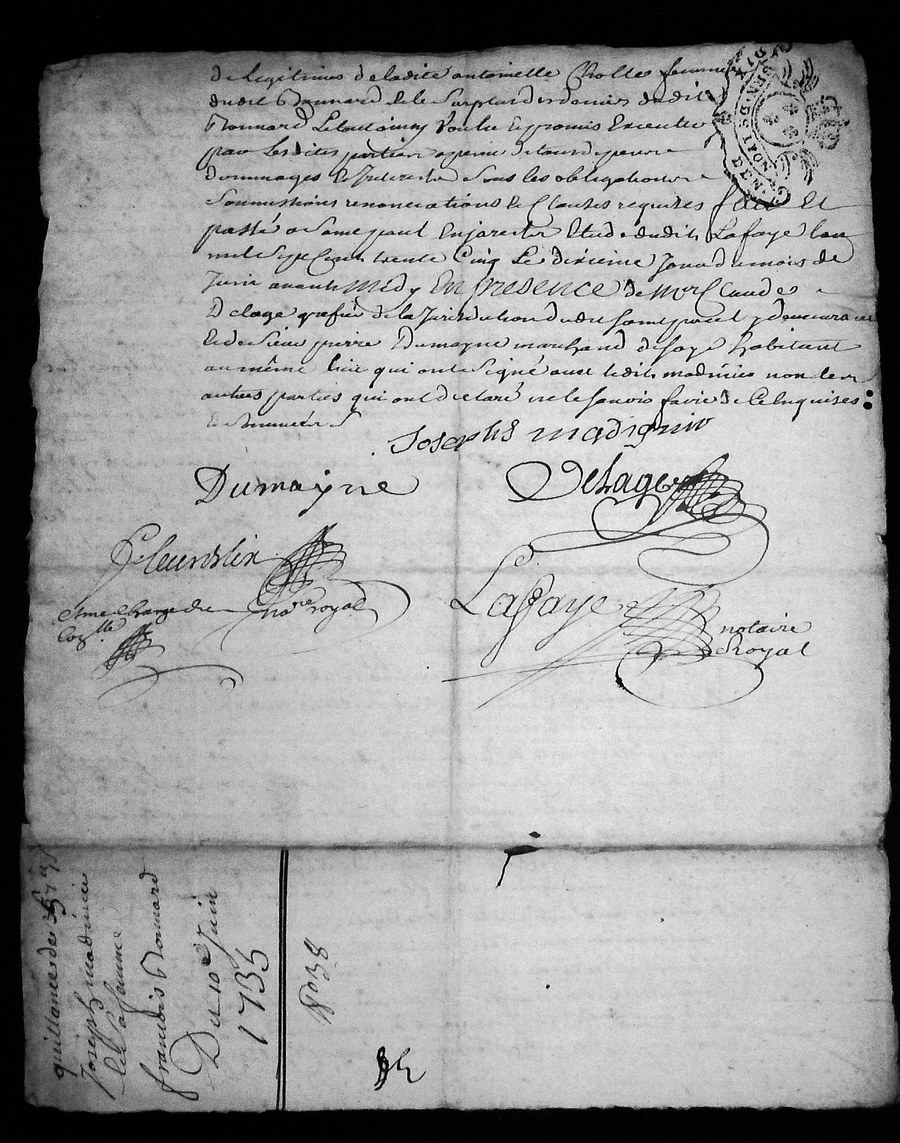 de legitimes de ladite antoinette Cholles femme
dudit Bonnard & le surplus des deniers dudit
Bonnard Le tout ainsy voulu & promis Executer
par Lesdites parties a peine de tous depens
dommages & Interests sous les obligations
soumissions renonciations & Clauses requises fait Et
passé a Etude dudit Lafaye Lan
mil sept Cent trente Cinq Le dixieme Jour du mois de
Juin avant midy En presence de Mre Claude
Delage grefier de la Jurisdiction dudit y demeurant
& de sieur pierre Dumayne marchand habitant
au même lieu qui ont signé avec ledit madinier non les
autres parties qui ont déclaré ne le sçavoir faire de Ce Enquises
Josephs madignier
Dumayne
Delage
fleurdelix
nore royal
Lafaye
notaire
Royal
quittance de
Joseph madinier
& sa femme
françois Bonnard
Du 10e Juin
1735
No 38